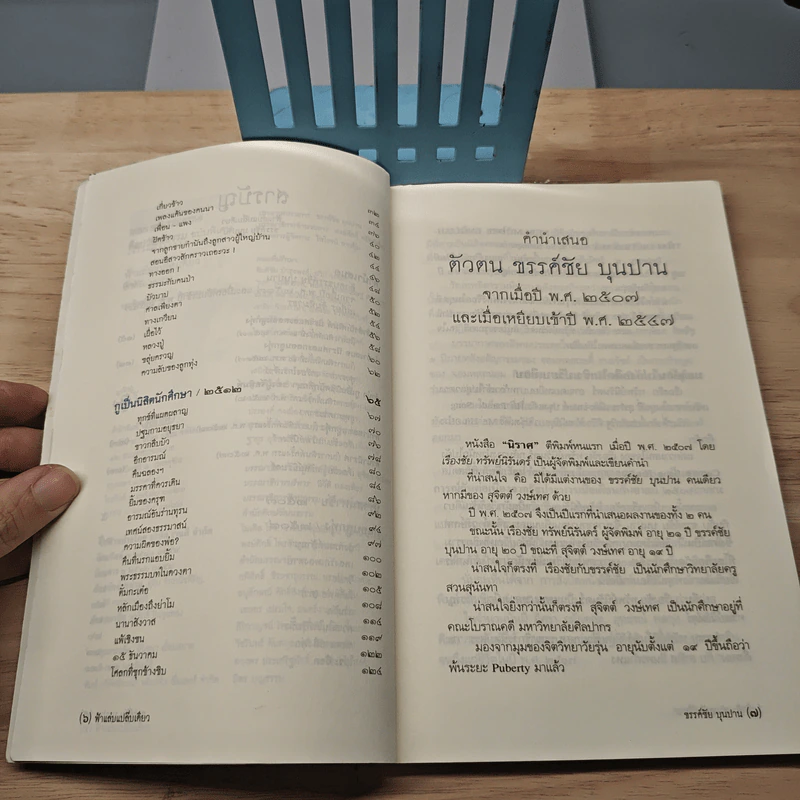 เกี่ยวข้าว ๓๒
เพลงแค้นของคนนา ๓๔
เพื่อน - แพง ๓๘
ปิดข้าว ๔๐
จากลูกชายกำนันถึงลูกสาวผู้ใหญ่บ้าน
สอนอีสาวสักคราวเถอะวะ !
ทางออก ! ๔๔
ธรรมะกับคนบ้า ๔๖
บัวบาป ๔๘
ศาลเพียงตา ๕๐
ทางเกวียน ๕๒
เมื่อไร้ ๕๔
หลวงปู่ ๕๖
ขลุ่ยครวญ ๕๘
ความลับของลูกทุ่ง ๖๐
๖๒
กูเป็นนิสิตนักศึกษา / ๒๕๑๒ ๖๕
ทุกข์ที่แผดผลาญ ๖๗
ปฐมกามอยุธยา ๗๐
ชาวกลีบบัว ๗๖
อีกอารมณ์ ๗๘
คืนฉลองฯ ๘๐
มรรคาที่ควรเดิน ๘๔
ยิ้มของครุฑ ๘๖
อารมณ์อันร่านทุรน ๙๒
เทศน์สองธรรมาสน์ ๙๔
ความผิดของพ่อ? ๙๗
คืนที่นรกแอบยิ้ม ๑๐๐
พระธรรมบทในดวงตา ๑๐๒
ดั้มกะเด๋อ ๑๐๕
หลักเมืองถึงย่าโม ๑๐๘
นานาสังวาส ๑๑๔
แพ้เชิงชน ๑๑๙
๑๕ ธันวาคม ๑๒๒
โศลกที่ซุกข้างซิบ ๑๒๔
(๖) ฟ้าแล่บแปล๊บเดียว
คำนำเสนอ
ตัวตน ขรรค์ชัย บุนปาน
จากเมื่อปี พ.ศ. ๒๕๐๗
และเมื่อเหยียบเข้าปี พ.ศ. ๒๕๔๗
หนังสือ “นิราศ” ตีพิมพ์หนแรก เมื่อปี พ.ศ. ๒๕๐๗ โดย
เรืองชัย ทรัพย์นิรันดร์ เป็นผู้จัดพิมพ์และเขียนคำนำ
ที่น่าสนใจ คือ มิได้มีแต่งานของ ขรรค์ชัย บุนปาน คนเดียว
หากมีของ สุจิตต์ วงษ์เทศ ด้วย
ปี พ.ศ. ๒๕๐๗ จึงเป็นปีแรกที่นำเสนอผลงานของทั้ง ๒ คน
ขณะนั้น เรืองชัย ทรัพย์นิรันดร์ ผู้จัดพิมพ์ อายุ ๒๑ ปี ขรรค์ชัย
บุนปาน อายุ ๒๐ ปี ขณะที่ สุจิตต์ วงษ์เทศ อายุ ๑๙ ปี
น่าสนใจก็ตรงที่ เรืองชัยกับขรรค์ชัย เป็นนักศึกษาวิทยาลัยครู
สวนสุนันทา
น่าสนใจยิ่งกว่านั้นก็ตรงที่ สุจิตต์ วงษ์เทศ เป็นนักศึกษาอยู่ที่
คณะโบราณคดี มหาวิทยาลัยศิลปากร
มองจากมุมของจิตวิทยาวัยรุ่น อายุนับตั้งแต่ ๑๙ ปีขึ้นถือว่า
พ้นระยะ Puberty มาแล้ว
ขรรค์ชัย บุนปาน (๗)